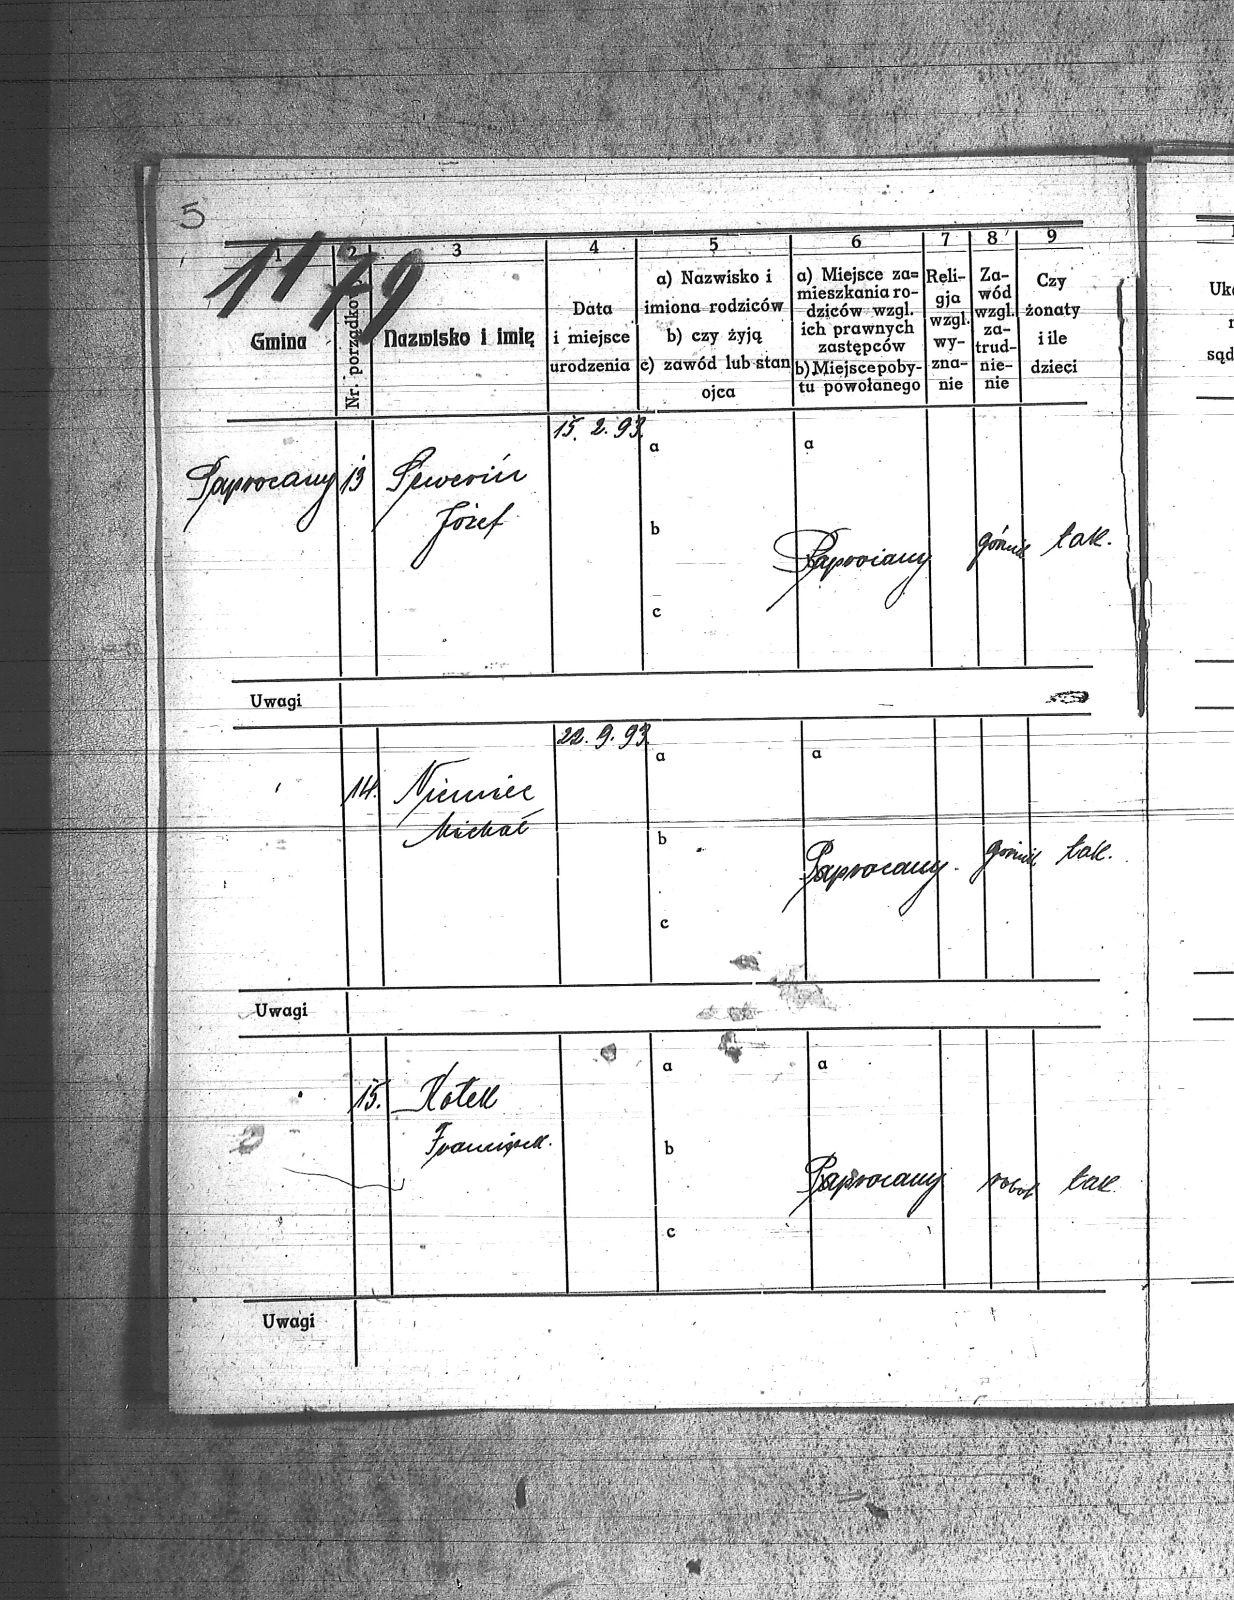 5
1179
1
2
3
4
5
6
7
8
9
Gmina
Nr. porządkow.
Nazwisko i imię
Data
i miejsce
urodzenia
a) Nazwisko i
imiona rodziców
b) czy żyją
c) zawód lub stan
ojca
a) Miejsce za=
mieszkania ro-
dziców wzgl.
ich prawnych
zastępców
b) Miejsce poby-
tu powołanego
Reli-
gja
wzgl.
wy-
zna-
nie
Za-
wód
wzgl.
za-
trud-
nie-
nie
Czy
żonaty
i ile
dzieci
Uko
sąd
15. 2. 93.
Paprocany 13 Sewerin
Józef
a
b
c
a
Paprocany górnik tak.
Uwagi
22. 9. 93.
14. Niemiec
Michał
a
b
c
a
Paprocany. górnik tak.
Uwagi
15. Kotek
Franciszek.
a
b
c
a
Paprocany robot tak
Uwagi